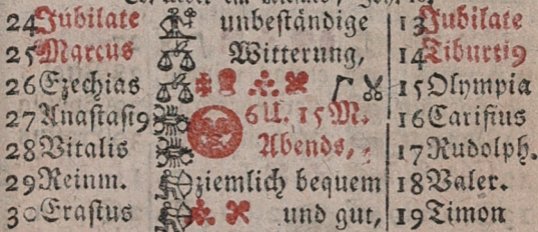 24 Jubilate unbeständige 13 Jubilate
25 Marcus Witterung, 14 Tiburti9
26 Ezechias 15 Olympia
27 Anastasi9 6 U. 15 M. 16 Carisius
28 Vitalis Abends, 17 Rudolph.
29 Reinm. ziemlich bequem 18 Valer.
30 Erastus und gut, 19 Timon